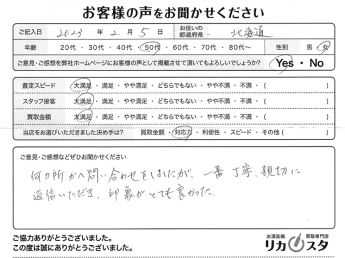 お客様の声をお聞かせください
ご記入日 2023 年 2 月 5 日 お住いの都道府県 北海道
年齢 20代・30代・40代・50代・60代・70代・80代〜 性別 男・女
ご意見・ご感想を弊社ホームページにお客様の声として掲載させて頂いてもよろしいでしょうか? Yes・No
査定スピード 大満足・満足・やや満足・どちらでもない・やや不満・不満・( )
スタッフ接客 大満足・満足・やや満足・どちらでもない・やや不満・不満・( )
買取金額 大満足・満足・やや満足・どちらでもない・やや不満・不満・( )
当店をお選びいただきました決め手は? 買取金額・対応力・利便性・スピード・その他( )
ご意見・ご感想などぜひお聞かせください
何カ所かへ問い合わせをしましたが、一番丁寧、親切に
返信いただき、印象がとても良かった。
ご協力ありがとうございました。
この度は誠にありがとうございました。
お酒高価 買取専門店
リカスタ